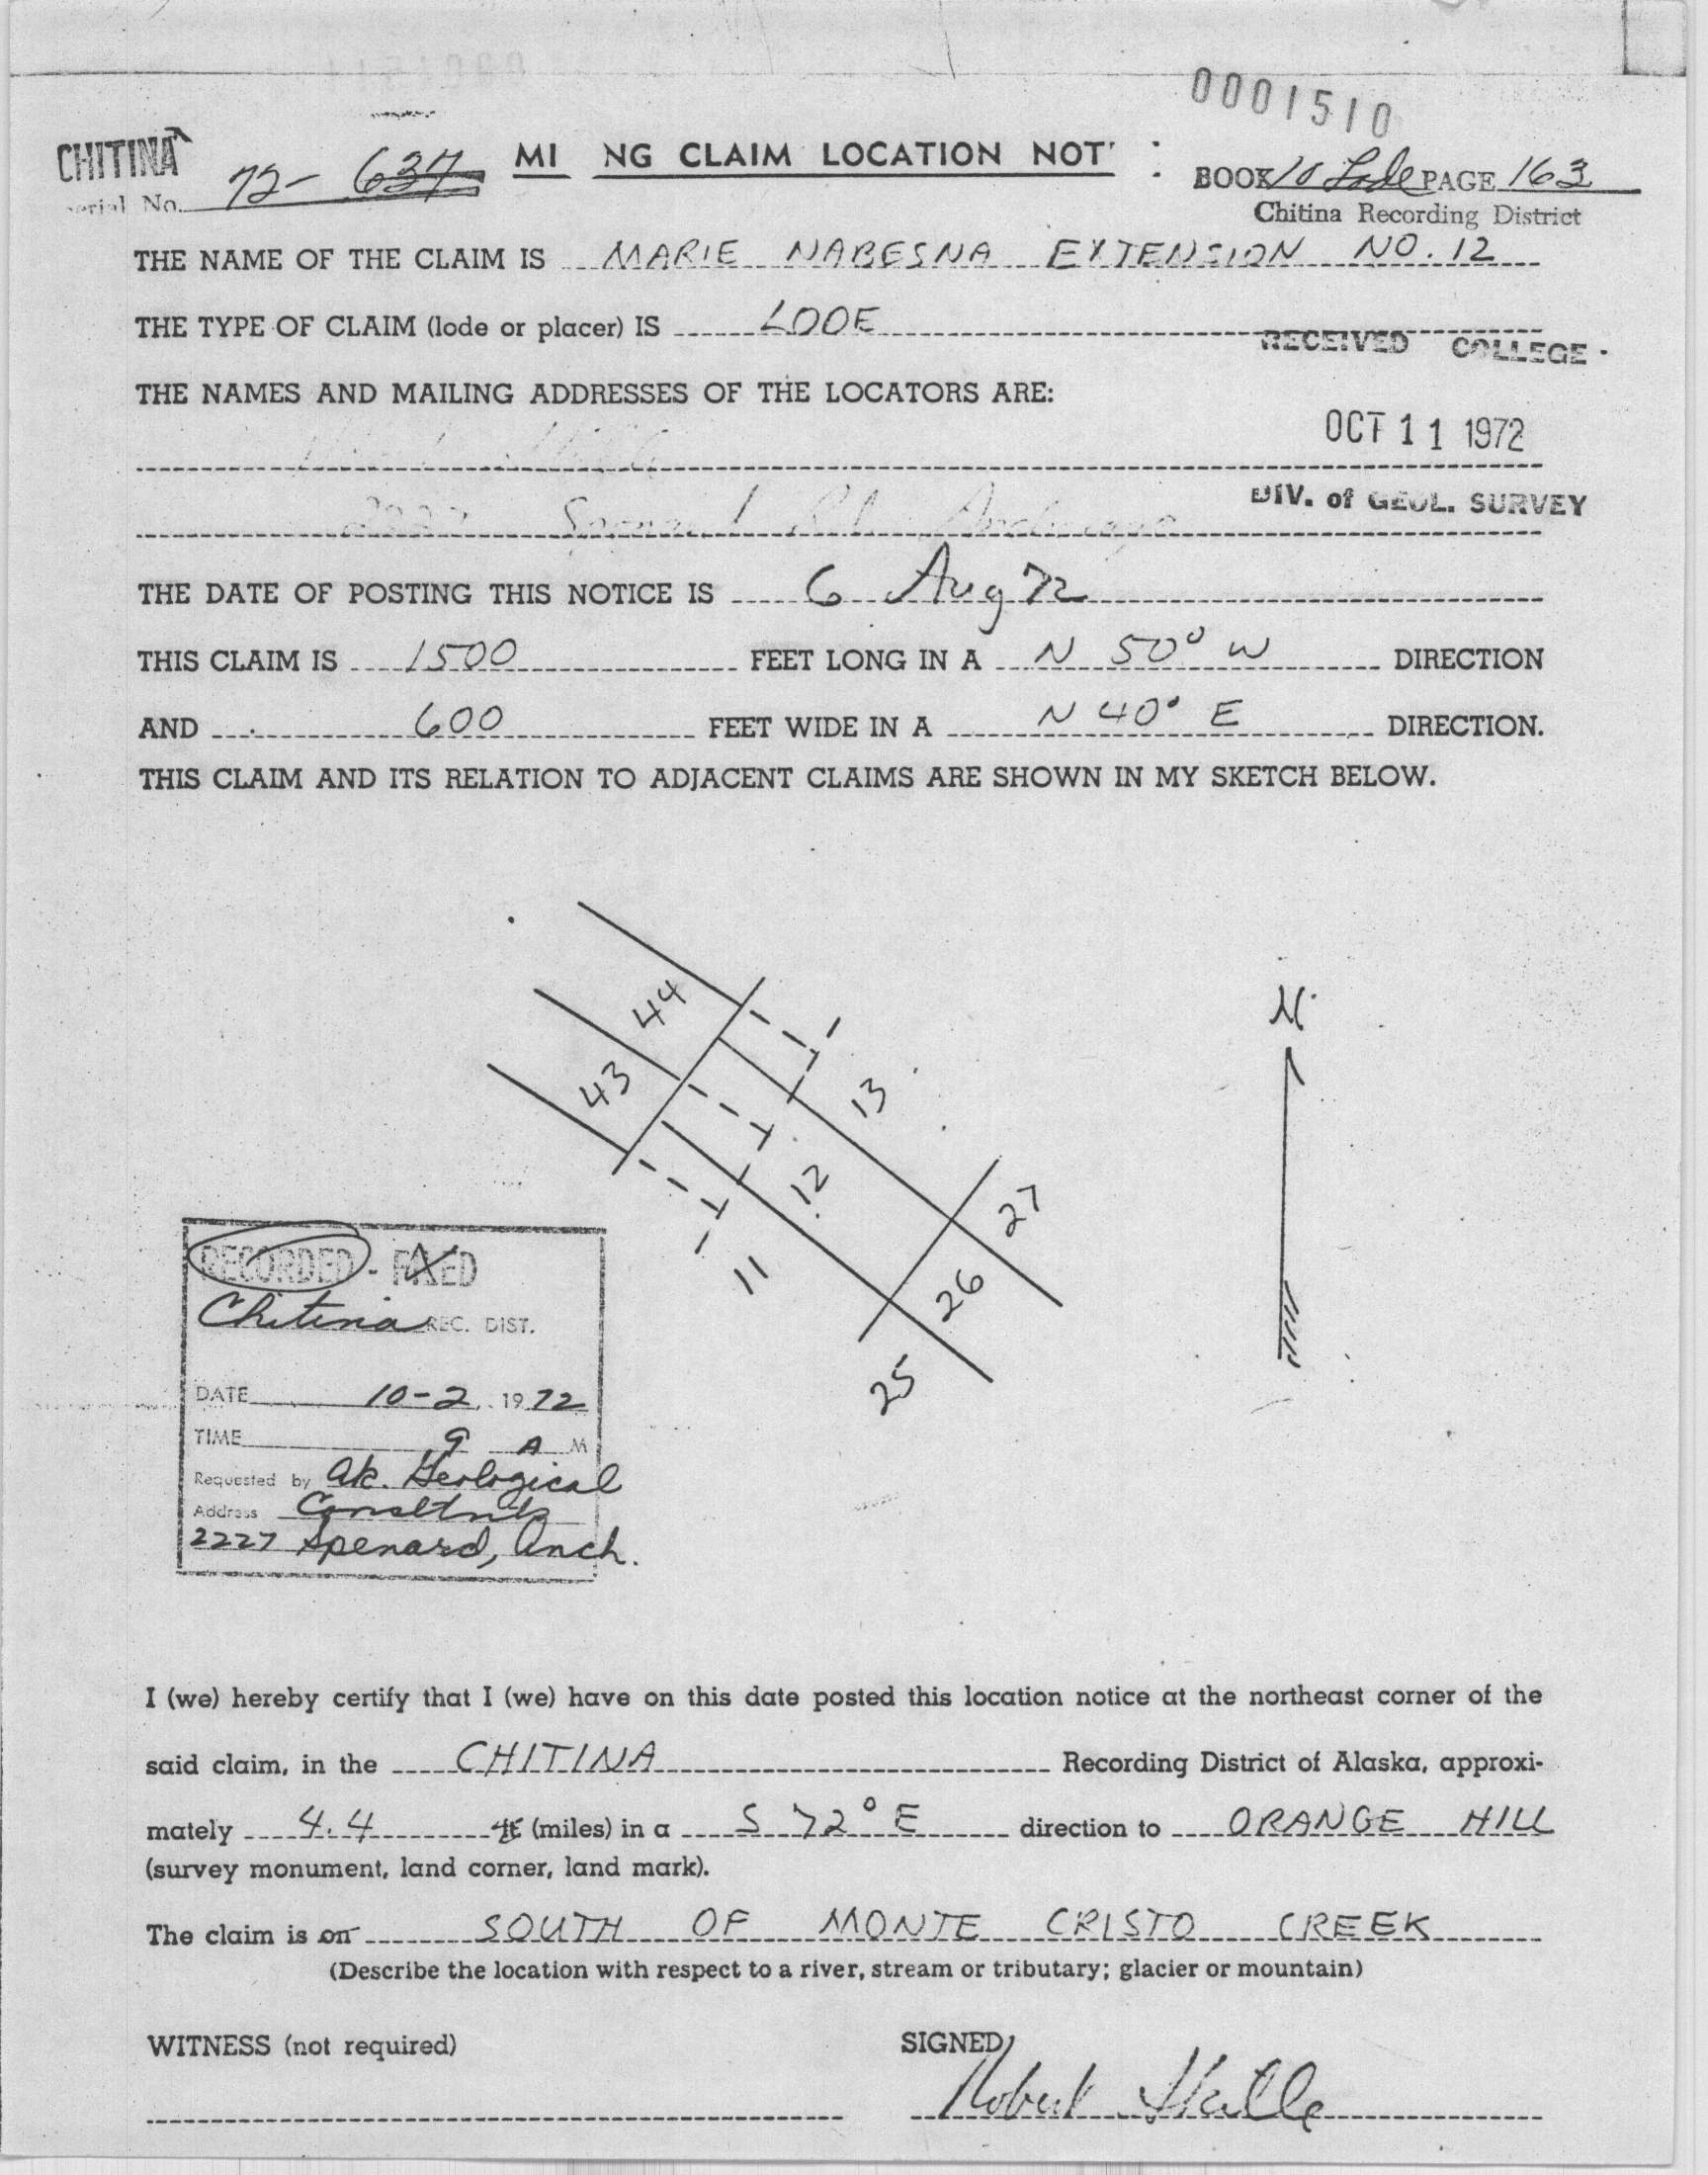 0001510
CHITINA
Serial No. 72-637
MI NG CLAIM LOCATION NOT
BOOK 10 Lode PAGE 163
Chitina Recording District
THE NAME OF THE CLAIM IS MARIE NABESNA EXTENSION NO. 12
THE TYPE OF CLAIM (lode or placer) IS LODE
RECEIVED COLLEGE
THE NAMES AND MAILING ADDRESSES OF THE LOCATORS ARE:
OCT 11 1972
Spenard Rd. Anchorage
DIV. of GEOL. SURVEY
THE DATE OF POSTING THIS NOTICE IS 6 Aug 72
THIS CLAIM IS 1500 FEET LONG IN A N 50° W DIRECTION
AND 600 FEET WIDE IN A N 40° E DIRECTION.
THIS CLAIM AND ITS RELATION TO ADJACENT CLAIMS ARE SHOWN IN MY SKETCH BELOW.
44
N
43
13
12
27
11
26
25
RECORDED - FILED
Chitina REC. DIST.
DATE 10-2, 1972
TIME 9 A M
Requested by Ak. Geological
Address Consltnts
2227 Spenard, Anch.
I (we) hereby certify that I (we) have on this date posted this location notice at the northeast corner of the
said claim, in the CHITINA Recording District of Alaska, approxi-
mately 4.4 ft (miles) in a S 72° E direction to ORANGE HILL
(survey monument, land corner, land mark).
The claim is on SOUTH OF MONTE CRISTO CREEK
(Describe the location with respect to a river, stream or tributary; glacier or mountain)
WITNESS (not required)
SIGNED
Robert